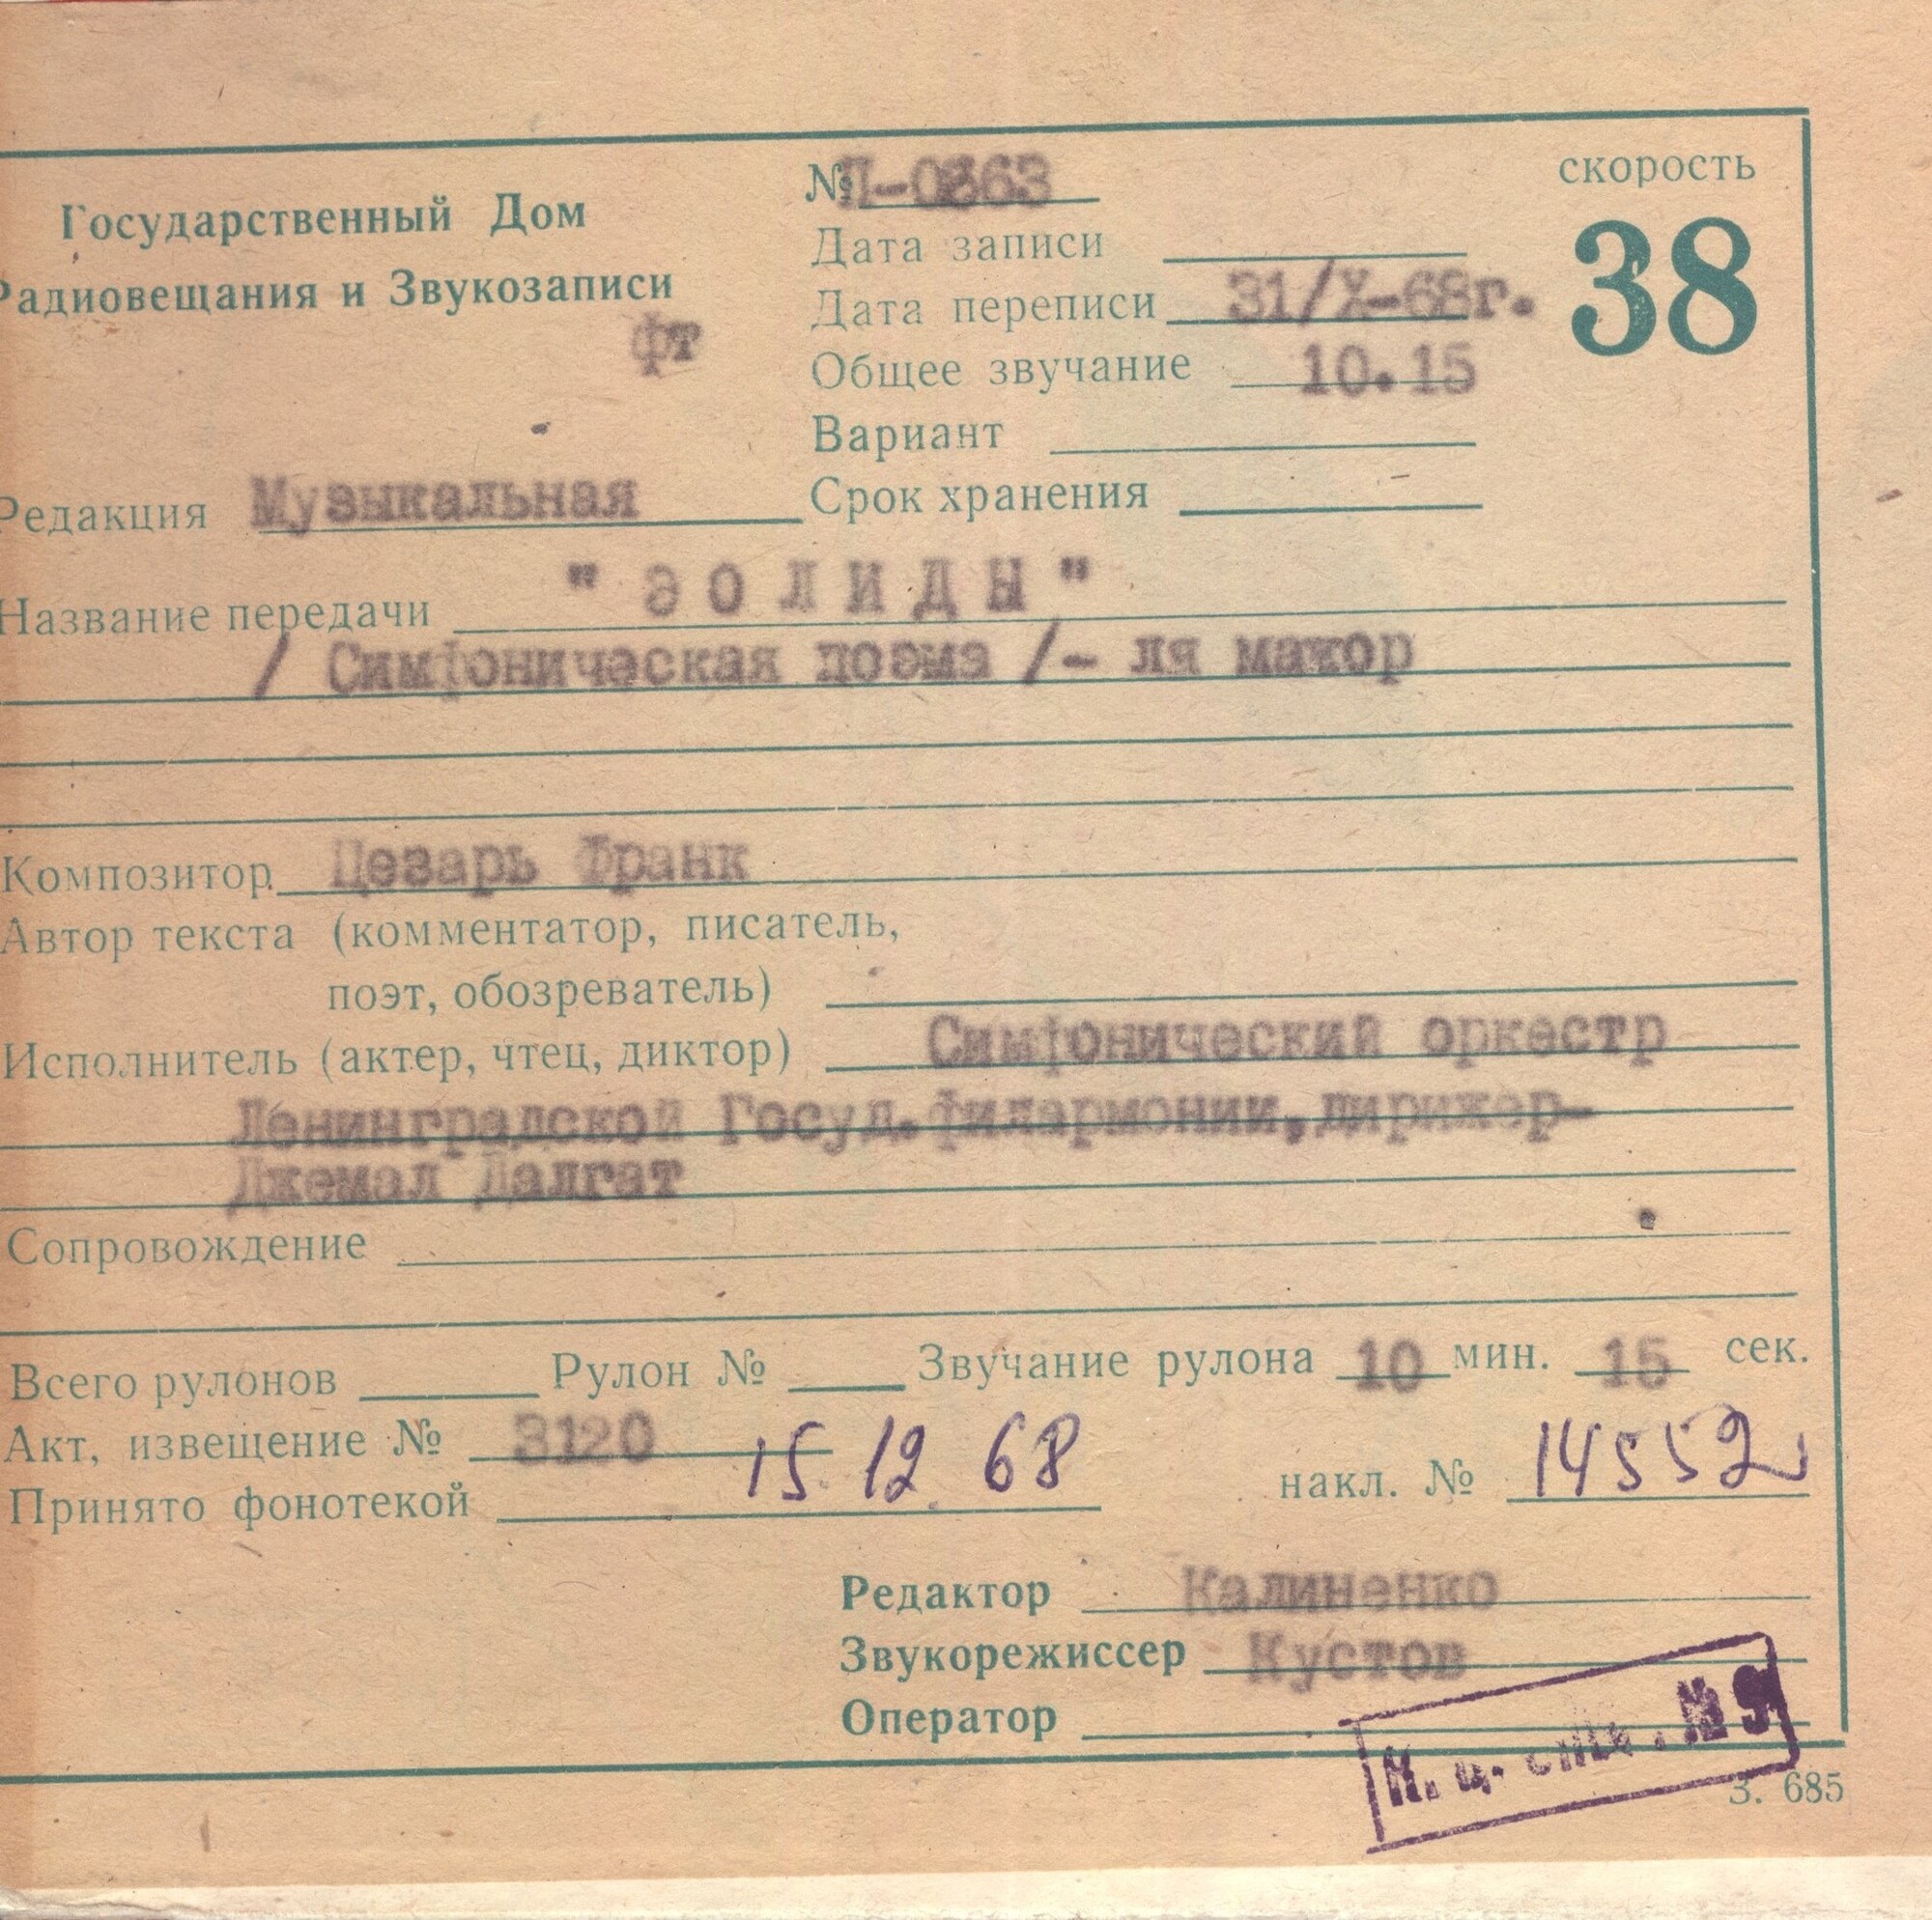 Государственный Дом
Радиовещания и Звукозаписи
фт
№ П-0863
скорость
38
Дата записи
Дата переписи 31/X-68г.
Общее звучание 10.15
Вариант
Редакция Музыкальная
Срок хранения
Название передачи " ЭОЛИДЫ "
/ Симфоническая поэма /- ля мажор
Композитор Цезарь Франк
Автор текста (комментатор, писатель,
поэт, обозреватель)
Исполнитель (актер, чтец, диктор) Симфонический оркестр
Ленинградской Госуд.филармонии,дирижер-
Джемал Далгат
Сопровождение
Всего рулонов Рулон № Звучание рулона 10 мин. 15 сек.
Акт, извещение № 3120
Принято фонотекой 15. 12. 68 накл. № 14552
Редактор Калиненко
Звукорежиссер Кустов
Оператор
№ 9
З. 685